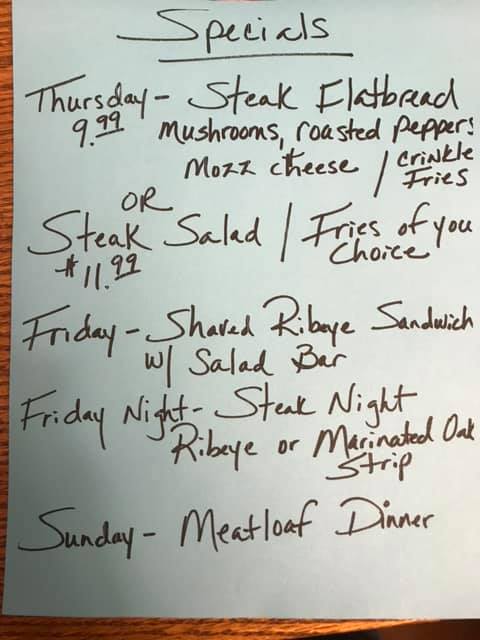 Specials
Thursday - Steak Flatbread
9.99 Mushrooms, roasted Peppers
Mozz cheese / Crinkle
Fries
OR
Steak Salad / Fries of you
Choice
$11.99
Friday - Shaved Ribeye Sandwich
w/ Salad Bar
Friday Night - Steak Night
Ribeye or Marinated Oak
Strip
Sunday - Meatloaf Dinner